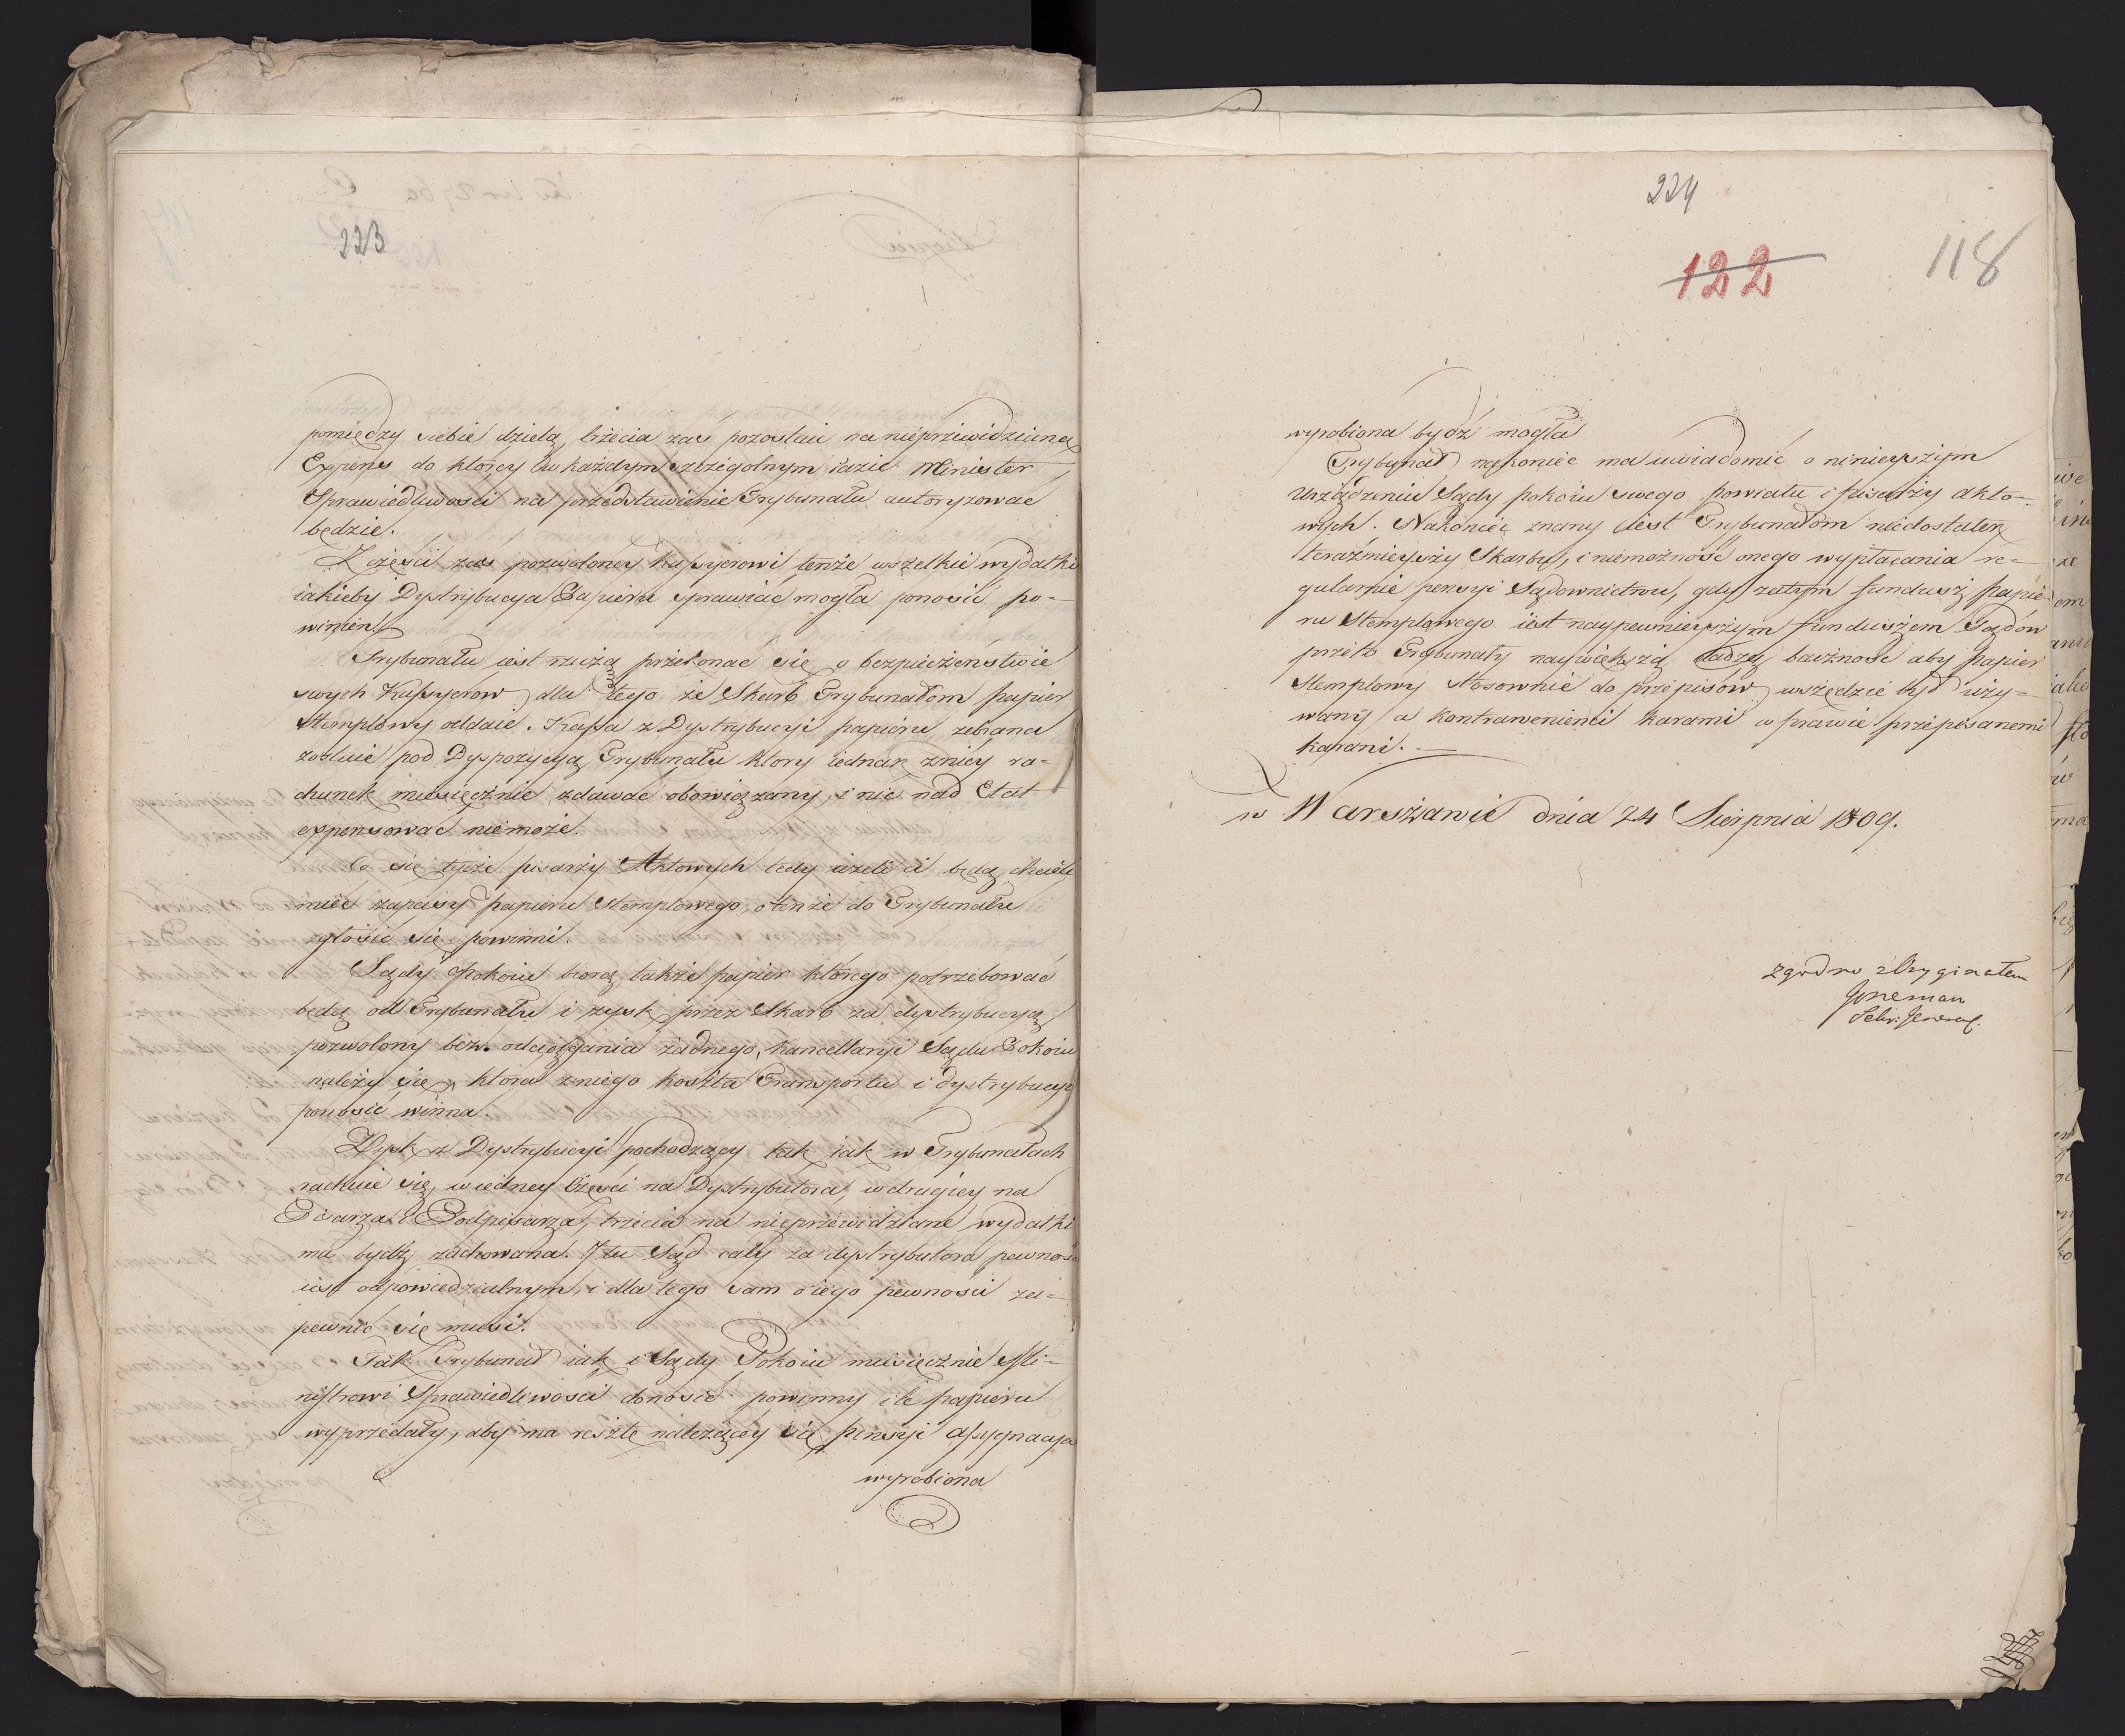 223
pomiędzy siebie dzielą, trzecia zaś pozostaie na nieprzewidzianą
Expens do którey w każdym szczególnym razie Minister
Sprawiedliwości na przedstawienie Trybunału autoryzować
będzie.
Z części zaś pozwoloney Kassyerowi tenże wszelkie wydatki
iakieby Dystrybucya Papieru sprawiać mogła ponosić po-
winien
Trybunału iest rzeczą przekonać się o bezpieczeństwie
swych Kassyerow dla tego że Skarb Trybunałom papier
Stemplowy oddaie. Kassa z Dystrybucyi papieru zebrana
zostaie pod Dyspozycyą Trybunału ktory iednak zniey ra-
chunek miesięcznie zdawać obowiązany, i nic nad Etat
expensować niemoże.
Co się tycze pisarzy Aktowych tedy ieżeli ci będą chcieli
mieć zapasy papieru stemplowego, o tenże do Trybunału
zgłosić się powinni.
Sądy Pokoiu biorą także papier którego potrzebować
będą od Trybunału i zysk przez Skarb za dystrybucyą
pozwolony bez odciągania żadnego, kancellaryi Sądu Pokoiu
należy się, która zniego koszta Transportu i dystrybucyi
ponosić winna.
Zysk z Dystrybucyi pochodzący tak iak w Trybunałach
rachuie się, w iedney Części na Dystrybutora, w drugiey na
Pisarza i Podpisarza, trzecia na nieprzewidziane wydatki
ma bydź zachowana. I tu Sąd cały za dystrybutora pewność
iest odpowiedzialnym, i dla tego sam o iego pewności za-
pewnić się musi.
Tak Trybunał iak i Sądy Pokoiu miesięcznie Mi-
nistrowi Sprawiedliwości donosić powinny ile papieru
wyprzedały, aby na resztę należącey się pensyi assygnacya
wyrobiona
224
122
118
wyrobiona bydź mogła
Trybunał nakoniec ma uwiadomić o ninieyszym
Urządzeniu Sądy pokoiu swego powiatu i pisarzy akto-
wych. Nakoniec znany iest Trybunałom niedostatek
teraźnieyszy Skarbu, i niemożność onego wypłacania re-
gularnie pensyi Sądownictwu, gdy zatym fundusz papie-
ru Stemplowego iest naypewnieyszym funduszem Sądów
przeto Trybunały naywiększą dadzą baczność aby papier
Stemplowy stosownie do przepisow wszędzie był uży-
wany a kontrawenienci karami w prawie przepisanemi
karani.
w Warszawie dnia 24 Sierpnia 1809.
zgodno z Oryginałem
Sekr: Jeneral.